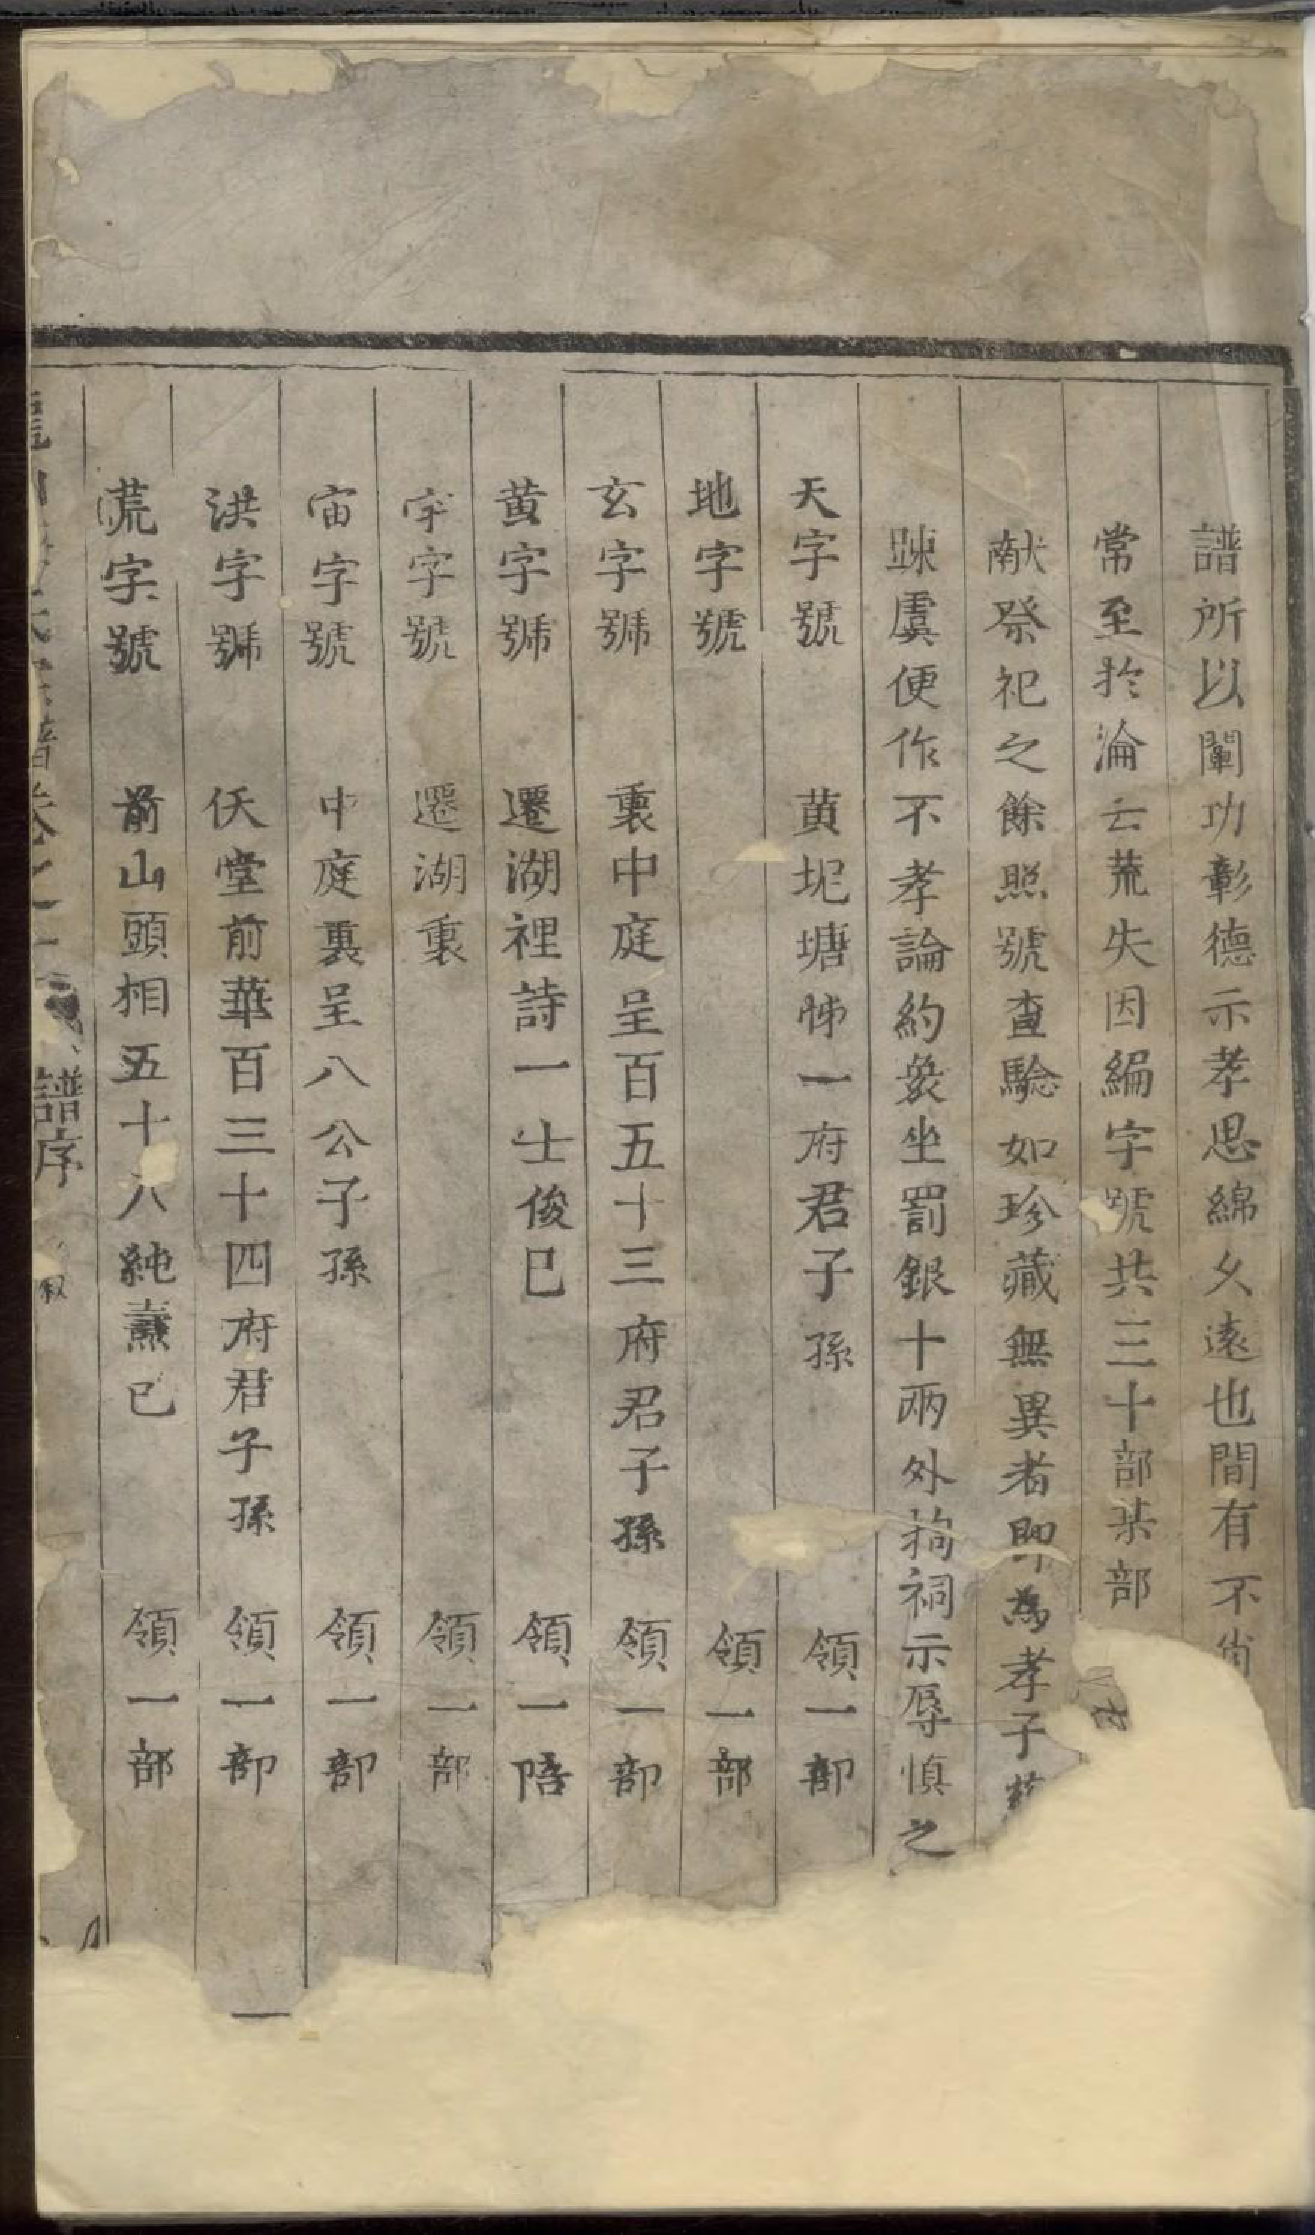 譜所以闡功彰德示孝思綿久遠也間有不肖
常至於淪亡荒失因編字號共三十部某部
献祭祀之餘照號查驗如珍藏無異者即為孝子
踈虞便作不孝論約衆坐罰銀十兩外拘祠示辱慎之
天字號 黄坭塘悌一府君子孫 領一部
地字號 領一部
玄字號 裏中庭呈百五十三府君子孫 領一部
黄字號 遷湖裡詩一士俊巳 領一
宇字號 遷湖裏 領一部
宙字號 中庭裏呈八公子孫 領一部
洪字號 仸堂前華百三十四府君子孫 領一部
荒字號 前山頭相五十八純燾巳 領一部
譜卷之一 譜序